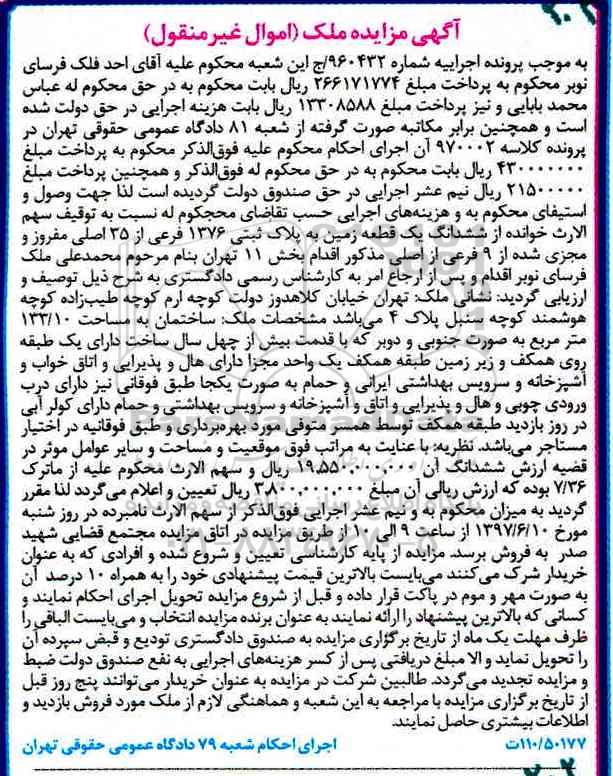 آگهی مزایده ملک (اموال غیرمنقول)
به موجب پرونده اجراییه شماره ۹۶۰۴۳۲/ج این شعبه محکوم علیه آقای احد فلک فرسای
نوبر محکوم به پرداخت مبلغ ۲۶۶۱۷۱۷۷۴ ریال بابت محکوم به در حق محکوم له عباس
محمد بابایی و نیز پرداخت مبلغ ۱۳۳۰۸۵۸۸ ریال بابت هزینه اجرایی در حق دولت شده
است و همچنین برابر مکاتبه صورت گرفته از شعبه ۸۱ دادگاه عمومی حقوقی تهران در
پرونده کلاسه ۹۷۰۰۰۲ آن اجرای احکام محکوم علیه فوق‌الذکر محکوم به پرداخت مبلغ
۴۳۰۰۰۰۰۰۰ ریال بابت محکوم به در حق محکوم له فوق‌الذکر و همچنین پرداخت مبلغ
۲۱۵۰۰۰۰۰ ریال نیم عشر اجرایی در حق صندوق دولت گردیده است لذا جهت وصول و
استیفای محکوم به و هزینه‌های اجرایی حسب تقاضای محجکوم له نسبت به توقیف سهم
الارث خوانده از ششدانگ یک قطعه زمین به پلاک ثبتی ۱۳۷۶ فرعی از ۳۵ اصلی مفروز و
مجزی شده از ۹ فرعی از اصلی مذکور اقدام بخش ۱۱ تهران بنام مرحوم محمدعلی ملک
فرسای نوبر اقدام و پس از ارجاع امر به کارشناس رسمی دادگستری به شرح ذیل توصیف و
ارزیابی گردید: نشانی ملک: تهران خیابان کلاهدوز دولت کوچه ارم کوچه طیب‌زاده کوچه
هوشمند کوچه سنبل پلاک ۴ می‌باشد مشخصات ملک: ساختمان به مساحت ۱۳۳/۱۰
متر مربع به صورت جنوبی و دوبر که با قدمت بیش از چهل سال ساخت دارای یک طبقه
روی همکف و زیر زمین طبقه همکف یک واحد مجزا دارای هال و پذیرایی و اتاق خواب و
آشپزخانه و سرویس بهداشتی ایرانی و حمام به صورت یکجا طبق فوقانی نیز دارای درب
ورودی چوبی و هال و پذیرایی و اتاق و آشپزخانه و سرویس بهداشتی و حمام دارای کولر آبی
در روز بازدید طبقه همکف توسط همسر متوفی مورد بهره‌برداری و طبق فوقانیه در اختیار
مستاجر می‌باشد. نظریه: با عنایت به مراتب فوق موقعیت و مساحت و سایر عوامل موثر در
قضیه ارزش ششدانگ آن ۱۹,۵۵۰,۰۰۰,۰۰۰ ریال و سهم الارث محکوم علیه از ماترک
۷/۳۶ بوده که ارزش ریالی آن مبلغ ۳,۸۰۰,۰۰۰,۰۰۰ ریال تعیین و اعلام می‌گردد لذا مقرر
گردید به میزان محکوم به و نیم عشر اجرایی فوق‌الذکر از سهم الارث نامبرده در روز شنبه
مورخ ۱۳۹۷/۶/۱۰ از ساعت ۹ الی ۱۰ از طریق مزایده در اتاق مزایده مجتمع قضایی شهید
صدر به فروش برسد. مزایده از پایه کارشناسی تعیین و شروع شده و افرادی که به عنوان
خریدار شرک می‌کنند می‌بایست بالاترین قیمت پیشنهادی خود را به همراه ۱۰ درصد آن
به صورت مهر و موم در پاکت قرار داده و قبل از شروع مزایده تحویل اجرای احکام نمایند و
کسانی که بالاترین پیشنهاد را ارائه نمایند به عنوان برنده مزایده انتخاب و می‌بایست الباقی را
ظرف مهلت یک ماه از تاریخ برگزاری مزایده به صندوق دادگستری تودیع و قبض سپرده آن
را تحویل نماید و الا مبلغ دریافتی پس از کسر هزینه‌های اجرایی به نفع صندوق دولت ضبط
و مزایده تجدید می‌گردد. طالبین شرکت در مزایده به عنوان خریدار می‌توانند پنج روز قبل
از تاریخ برگزاری مزایده با مراجعه به این شعبه و هماهنگی لازم از ملک مورد فروش بازدید و
اطلاعات بیشتری حاصل نمایند.
۱۱۰/۵۰۱۷۷ت اجرای احکام شعبه ۷۹ دادگاه عمومی حقوقی تهران